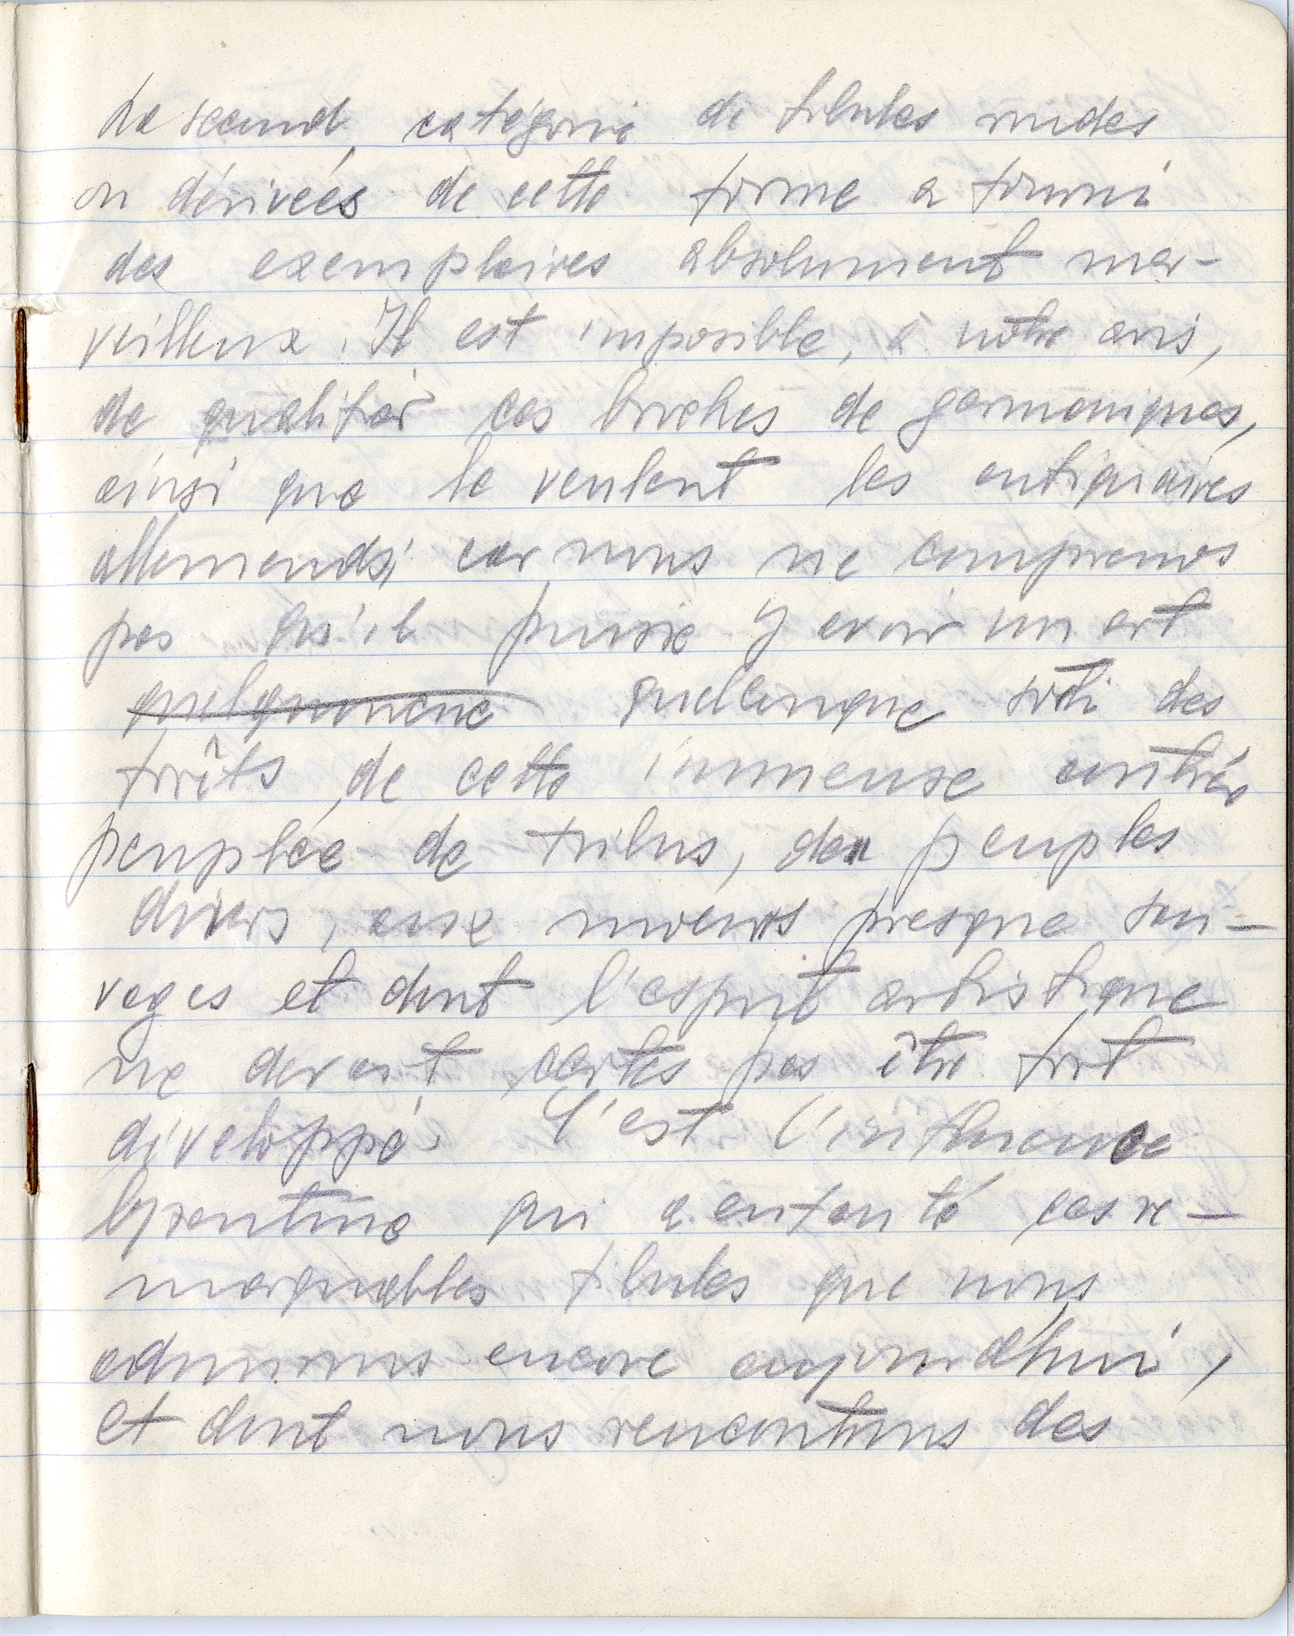 La second catégorie de fibules rondes
ou dérivées de cette forme a fourni
des exemplaires absolument mer-
veilleux. Il est impossible, à notre avis,
de qualifier ces broches de germaniques,
ainsi que le veulent les antiquaires
allemands, car nous ne comprenons
pas qu'il puisse y avoir un art
quelconque sorti des
forêts de cette immense contrée
peuplée de tribus, de peuples
divers, aux moeurs presque sau-
vages et dont l'esprit artistique
ne devait certes pas être fort
développé. C'est l'influence
byzantine qui a enfanté ces re-
marquables fibules que nous
admirons encore aujourd'hui,
et dont nous rencontrons des